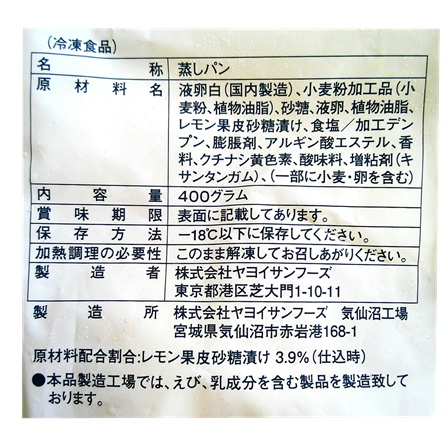 (冷凍食品)
名称 蒸しパン
原材料名 液卵白(国内製造)、小麦粉加工品(小
麦粉、植物油脂)、砂糖、液卵、植物油脂、
レモン果皮砂糖漬け、食塩/加工デン
プン、膨脹剤、アルギン酸エステル、香
料、クチナシ黄色素、酸味料、増粘剤(キ
サンタンガム)、(一部に小麦・卵を含む)
内容量 400グラム
賞味期限 表面に記載してあります。
保存方法 −18℃以下に保存してください。
加熱調理の必要性 このまま解凍してお召しあがりください。
製造者 株式会社ヤヨイサンフーズ
東京都港区芝大門1-10-11
製造所 株式会社ヤヨイサンフーズ 気仙沼工場
宮城県気仙沼市赤岩港168-1
原材料配合割合:レモン果皮砂糖漬け 3.9%(仕込時)
●本品製造工場では、えび、乳成分を含む製品を製造して
おります。